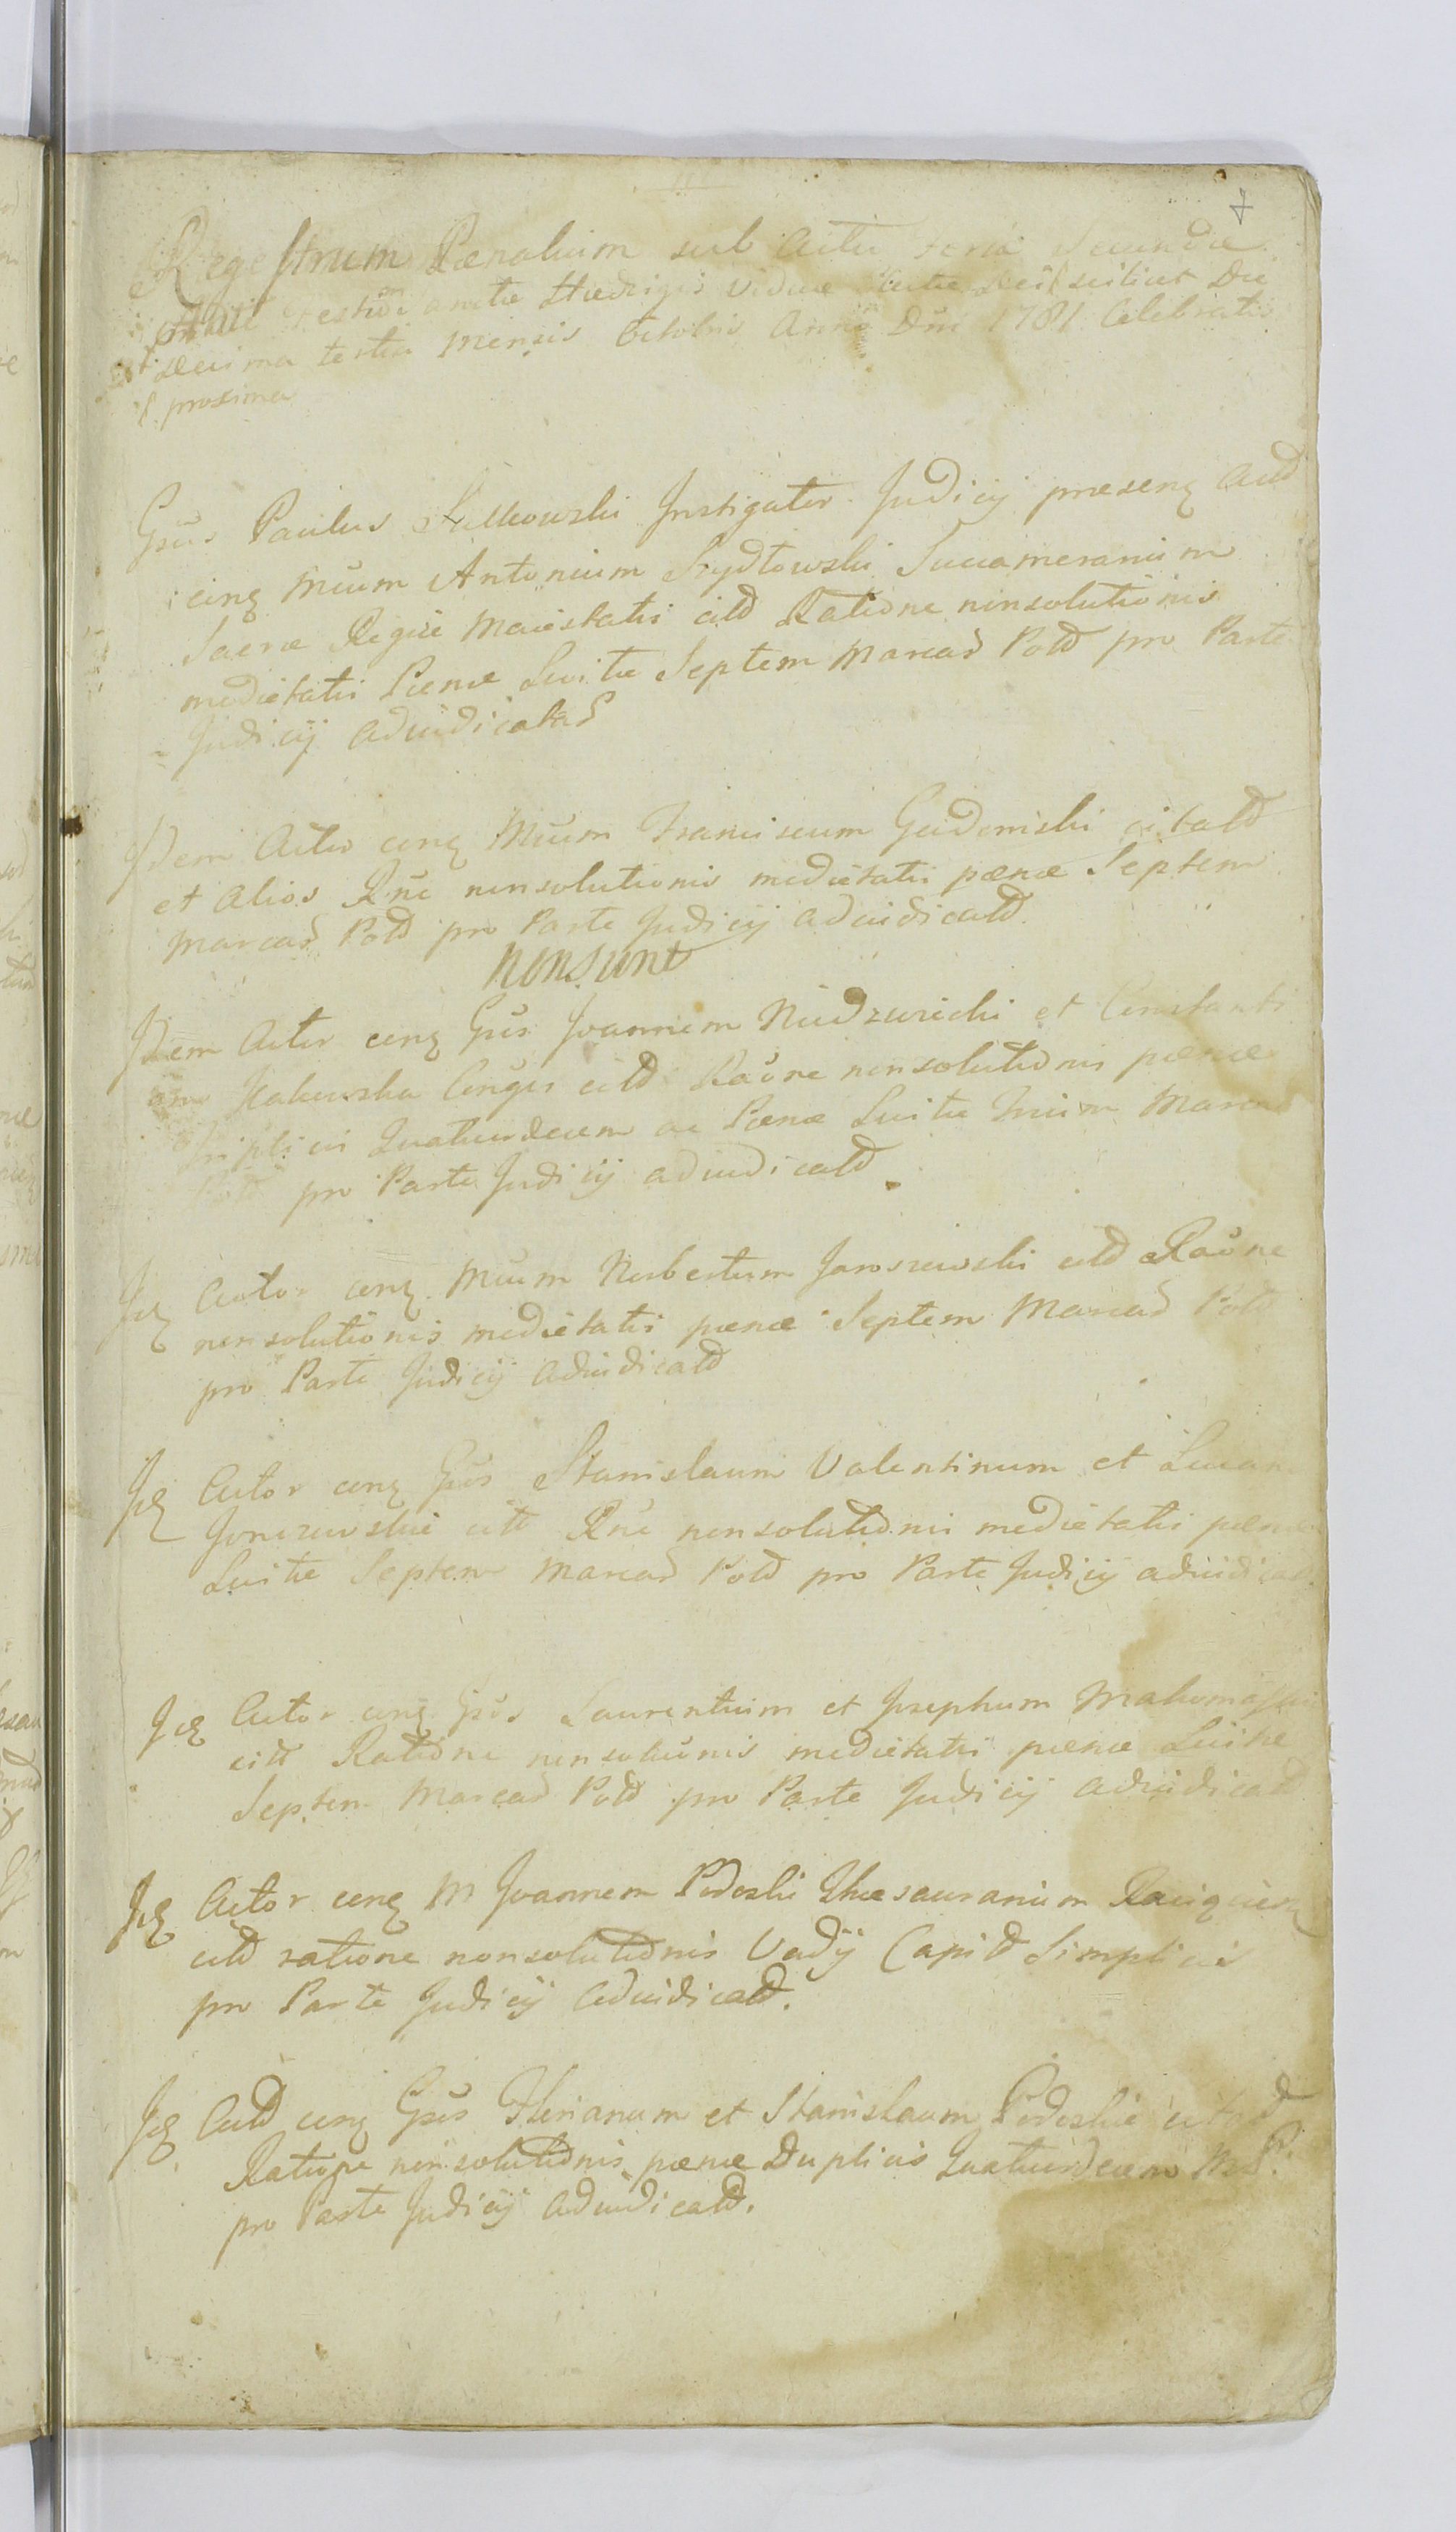 Regestrum Pænalium sub Actu Feria Secunda
post Festum Sanctæ Hedvigis Viduæ scilicet Die
Decima tertia Mensis Octobris Anno Dni 1781 Celebrati
proxima
Gsus Paulus Sulkowski Instigator Judicij præsenz Actd
conz Mcum Antonium Szydłowski Succamerarium
Sacræ Regiæ Maiestatis citd Ratione nonsolutionis
medietatis Pænæ Luitæ Septem Marcas Pold pro Parte
Judicij adiudicatas
Idem Actor conz Mcum Franciscum citatd
et alios Rne nonsolutionis medietatis pænæ Septem
Marcas Pold pro Parte Judicij adiudicatd
Nonsunt
Idem Actor conz Gsos Joannem et Constanti
am Conges citd Raōne nonsolutionis pænæ
Triplicis Quatuordecem ac Pænæ Luitæ Trium Marcas
Pold pro Parte Judicij adiudicatd.
Idz Actor conz Mcum Norbertum Jaroszewski citd Raōne
nonsolutionis medietatis pænæ Septem Marcas Pold
pro Parte Judicij adiudicatd
Idz Actor conz Gsos Stanislaum Valentinum et Lucam
citt Rne nonsolutionis medietatis pænæ
Luitæ Septem Marcas Pold pro Parte Judicij adiudicatd
Idz Actor conz Gsos Laurentium et Josephum
citt Ratione nonsolutionis medietatis pænæ Luitæ
Septem Marcas Pold pro Parte Judicij adiudicatd
Idz Actor conz M Joannem Podoski Thesaurarium
citd ratione nonsolutionis Vadij Capitd Simplicis
pro Parte Judicij adiudicatd.
Idz Actd conz Gsos Florianum et Stanislaum Podoskie citd
Ratione nonsolutionis pænæ Duplicis Quatuordecem M P.
pro Parte Judicij adiudicatd.